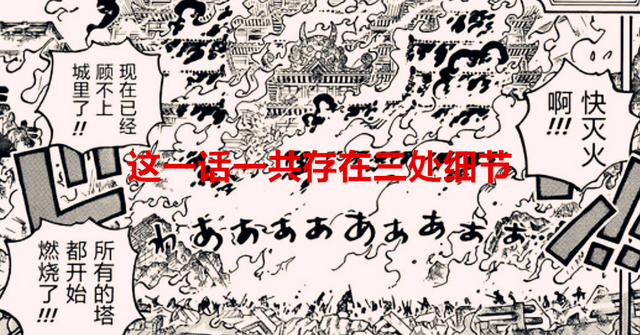 快灭火
啊!!!
现在已经
顾不上
城里了!!
这一话一共存在三处细节
わああああああああ
所有的塔
都开始
燃烧了!!!